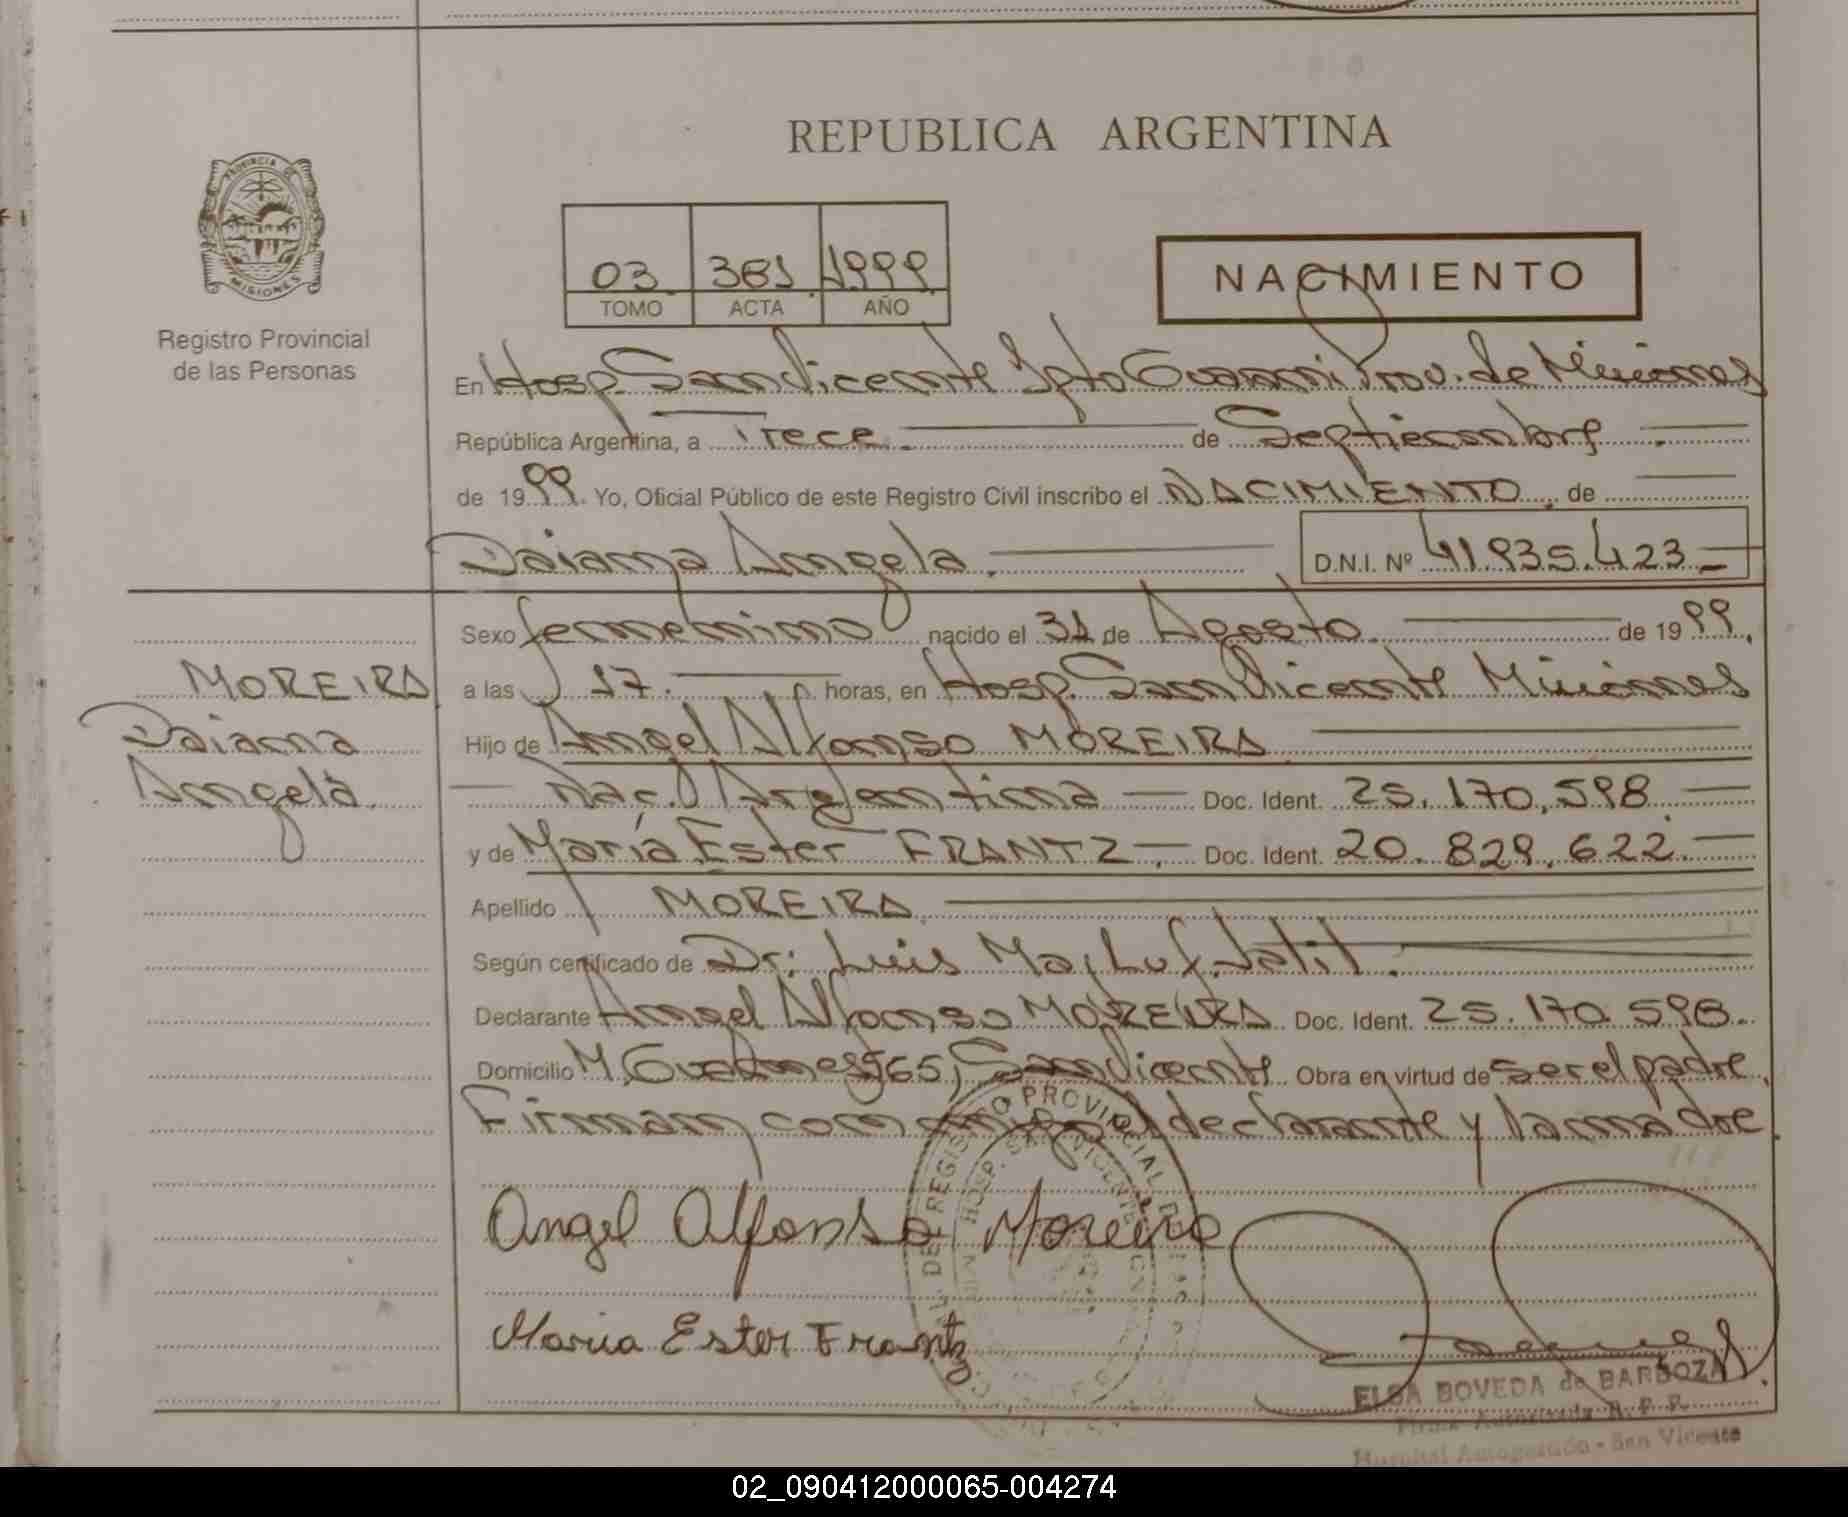 REPUBLICA ARGENTINA
PROVINCIA DE MISIONES
Registro Provincial
de las Personas
03 381 1999
TOMO ACTA AÑO
NACIMIENTO
En Hosp. San Vicente Dpto Guaraní Prov. de Misiones
República Argentina, a Trece de Septiembre
de 1999. Yo, Oficial Público de este Registro Civil inscribo el NACIMIENTO, de
Daiana Angela. D.N.I. Nº 41.935.423
Sexo femenino nacido el 31 de Agosto de 1999,
a las 17. horas, en Hosp. San Vicente Misiones
Hijo de Angel Alfonso MOREIRA
Nac. Argentina Doc. Ident. 25.170.598
y de María Ester FRANTZ, Doc. Ident. 20.829.622
Apellido MOREIRA
Según certificado de Dr: Luis Jalit.
Declarante Angel Alfonso MOREIRA Doc. Ident. 25.170.598.
Domicilio M. 965, San Vicente Obra en virtud de ser el padre.
Firman conmigo el declarante y la madre.
MOREIRA
Daiana
Angela
Angel Alfonso Moreira
Maria Ester Frantz
REGISTRO PROVINCIAL DE
HOSP. SAN VICENTE
ELSA BOVEDA de BARBOZA
Firma Autorizada R. P. P.
Hospital Autogestión - San Vicente
02_090412000065-004274